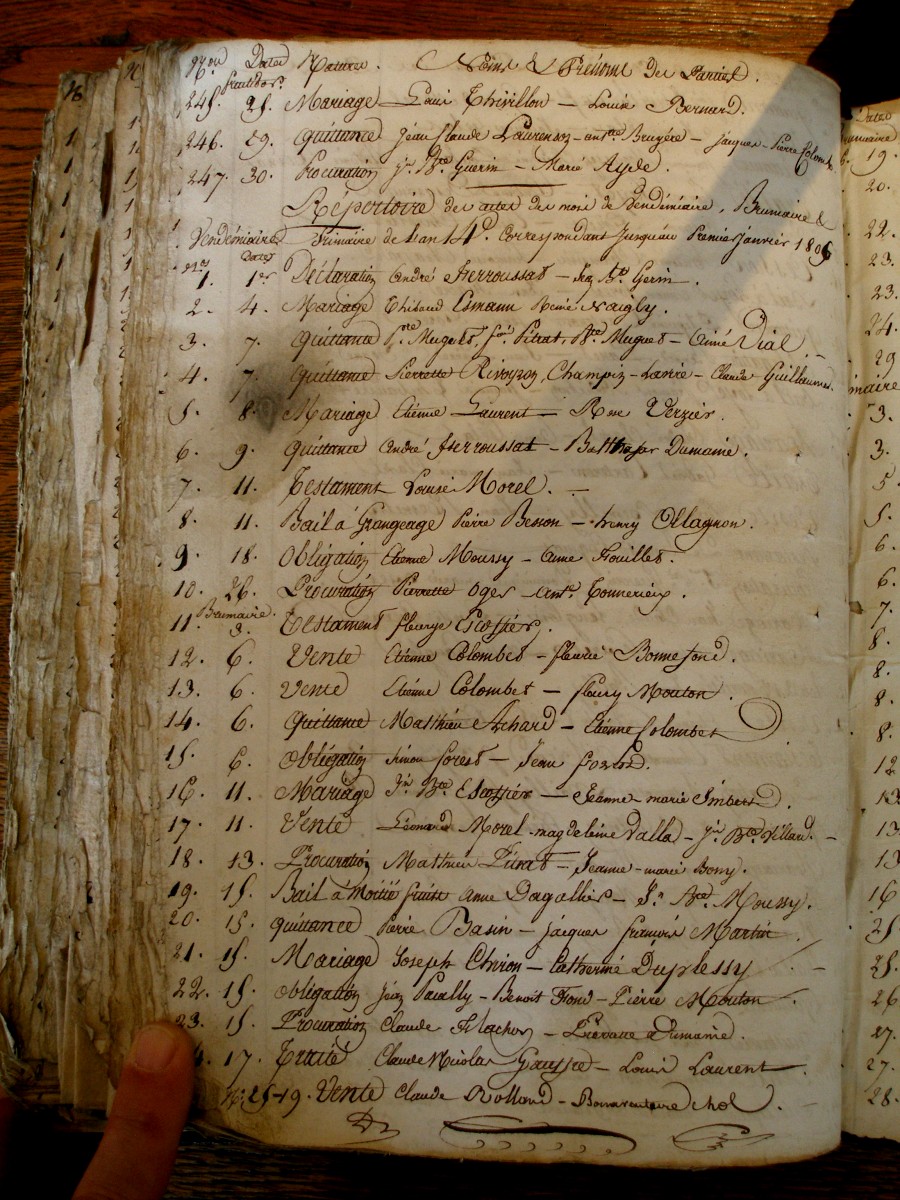 Nos Dates Natures. Noms & Prénoms des Parties.
fructidor
245. 25. Mariage Louis Thivillon – Louise Bernard.
246. 29. Quittance jean Claude Laurenson – antne Bruyère – jacques – Pierre Colomb
247. 30. Procuration jn Bte Guerin – Marie Ayde.
Répertoire des actes des mois de Vendémiaire, Brumaire &
Vendémiaire frimaire de l'an 14e. Correspondant jusquau Premier janvier 1806
Nos Dates
1. 1er Déclaration andré ferroussat – Jn Bte Gerin.
2. 4. Mariage Thibaud Esmann Reine Naigly.
3. 7. Quittance Pre Muguet, Pitrat, Bte Muguet – Aimé Vial.
4. 7. Quittance Pierrette Rivoyron, Champin – Lanie – Claude Guillaumed.
5. 8. Mariage Etienne Laurent – Rose Verzier.
6. 9. Quittance andré ferroussat – Balthazar Dumaine.
7. 11. Testament Louise Morel.
8. 11. Bail à Grangeage Pierre Besson – henry Ollagnon.
9. 18. Obligation Etienne Moussy – anne Fouillet.
10. 26. Procuration Pierrette Oger – antne Tonnerieux.
Brumaire.
11. 3. Testament fleurye Escoffier.
12. 6. Vente Etienne Colombet – fleurie Bonnefond.
13. 6. Vente Etienne Colombet – fleury Mouton.
14. 6. Quittance Matthieu Achard – Etienne Colombet
15. 6. Obligation Simon forest – Jean
16. 11. Mariage Jn Bte Escoffier – Jeanne-marie Imbert.
17. 11. Vente Léonard Morel magdeleine Valla – Jn Bte Villard.
18. 13. Procuration Matthieu Pitrat – Jeanne-marie Bony.
19. 15. Bail à Moitié fruits Anne Dagallier – Jn Bte Moussy.
20. 15. Quittance Pierre Basin – jacques françois Martin.
21. 15. Mariage Joseph Chiron – Catherine Duplessy
22. 15. Obligation Jean Pailly – Benoit Fond – Pierre Mouton.
23. 15. Procuration Claude Flachon – Pierrette Dumaine.
4. 17. Traité Claude Nicolas Gausse – Louis Laurent
No. 25–19. Vente Claude Rolland – Bonaventure chol.
Dates
maire
19.
20.
22.
23.
23.
24.
29
maire
3.
3.
5
5.
6.
6.
7.
8.
8.
8.
8.
12
13
13
13
16
25.
25.
26
27.
27.
28.